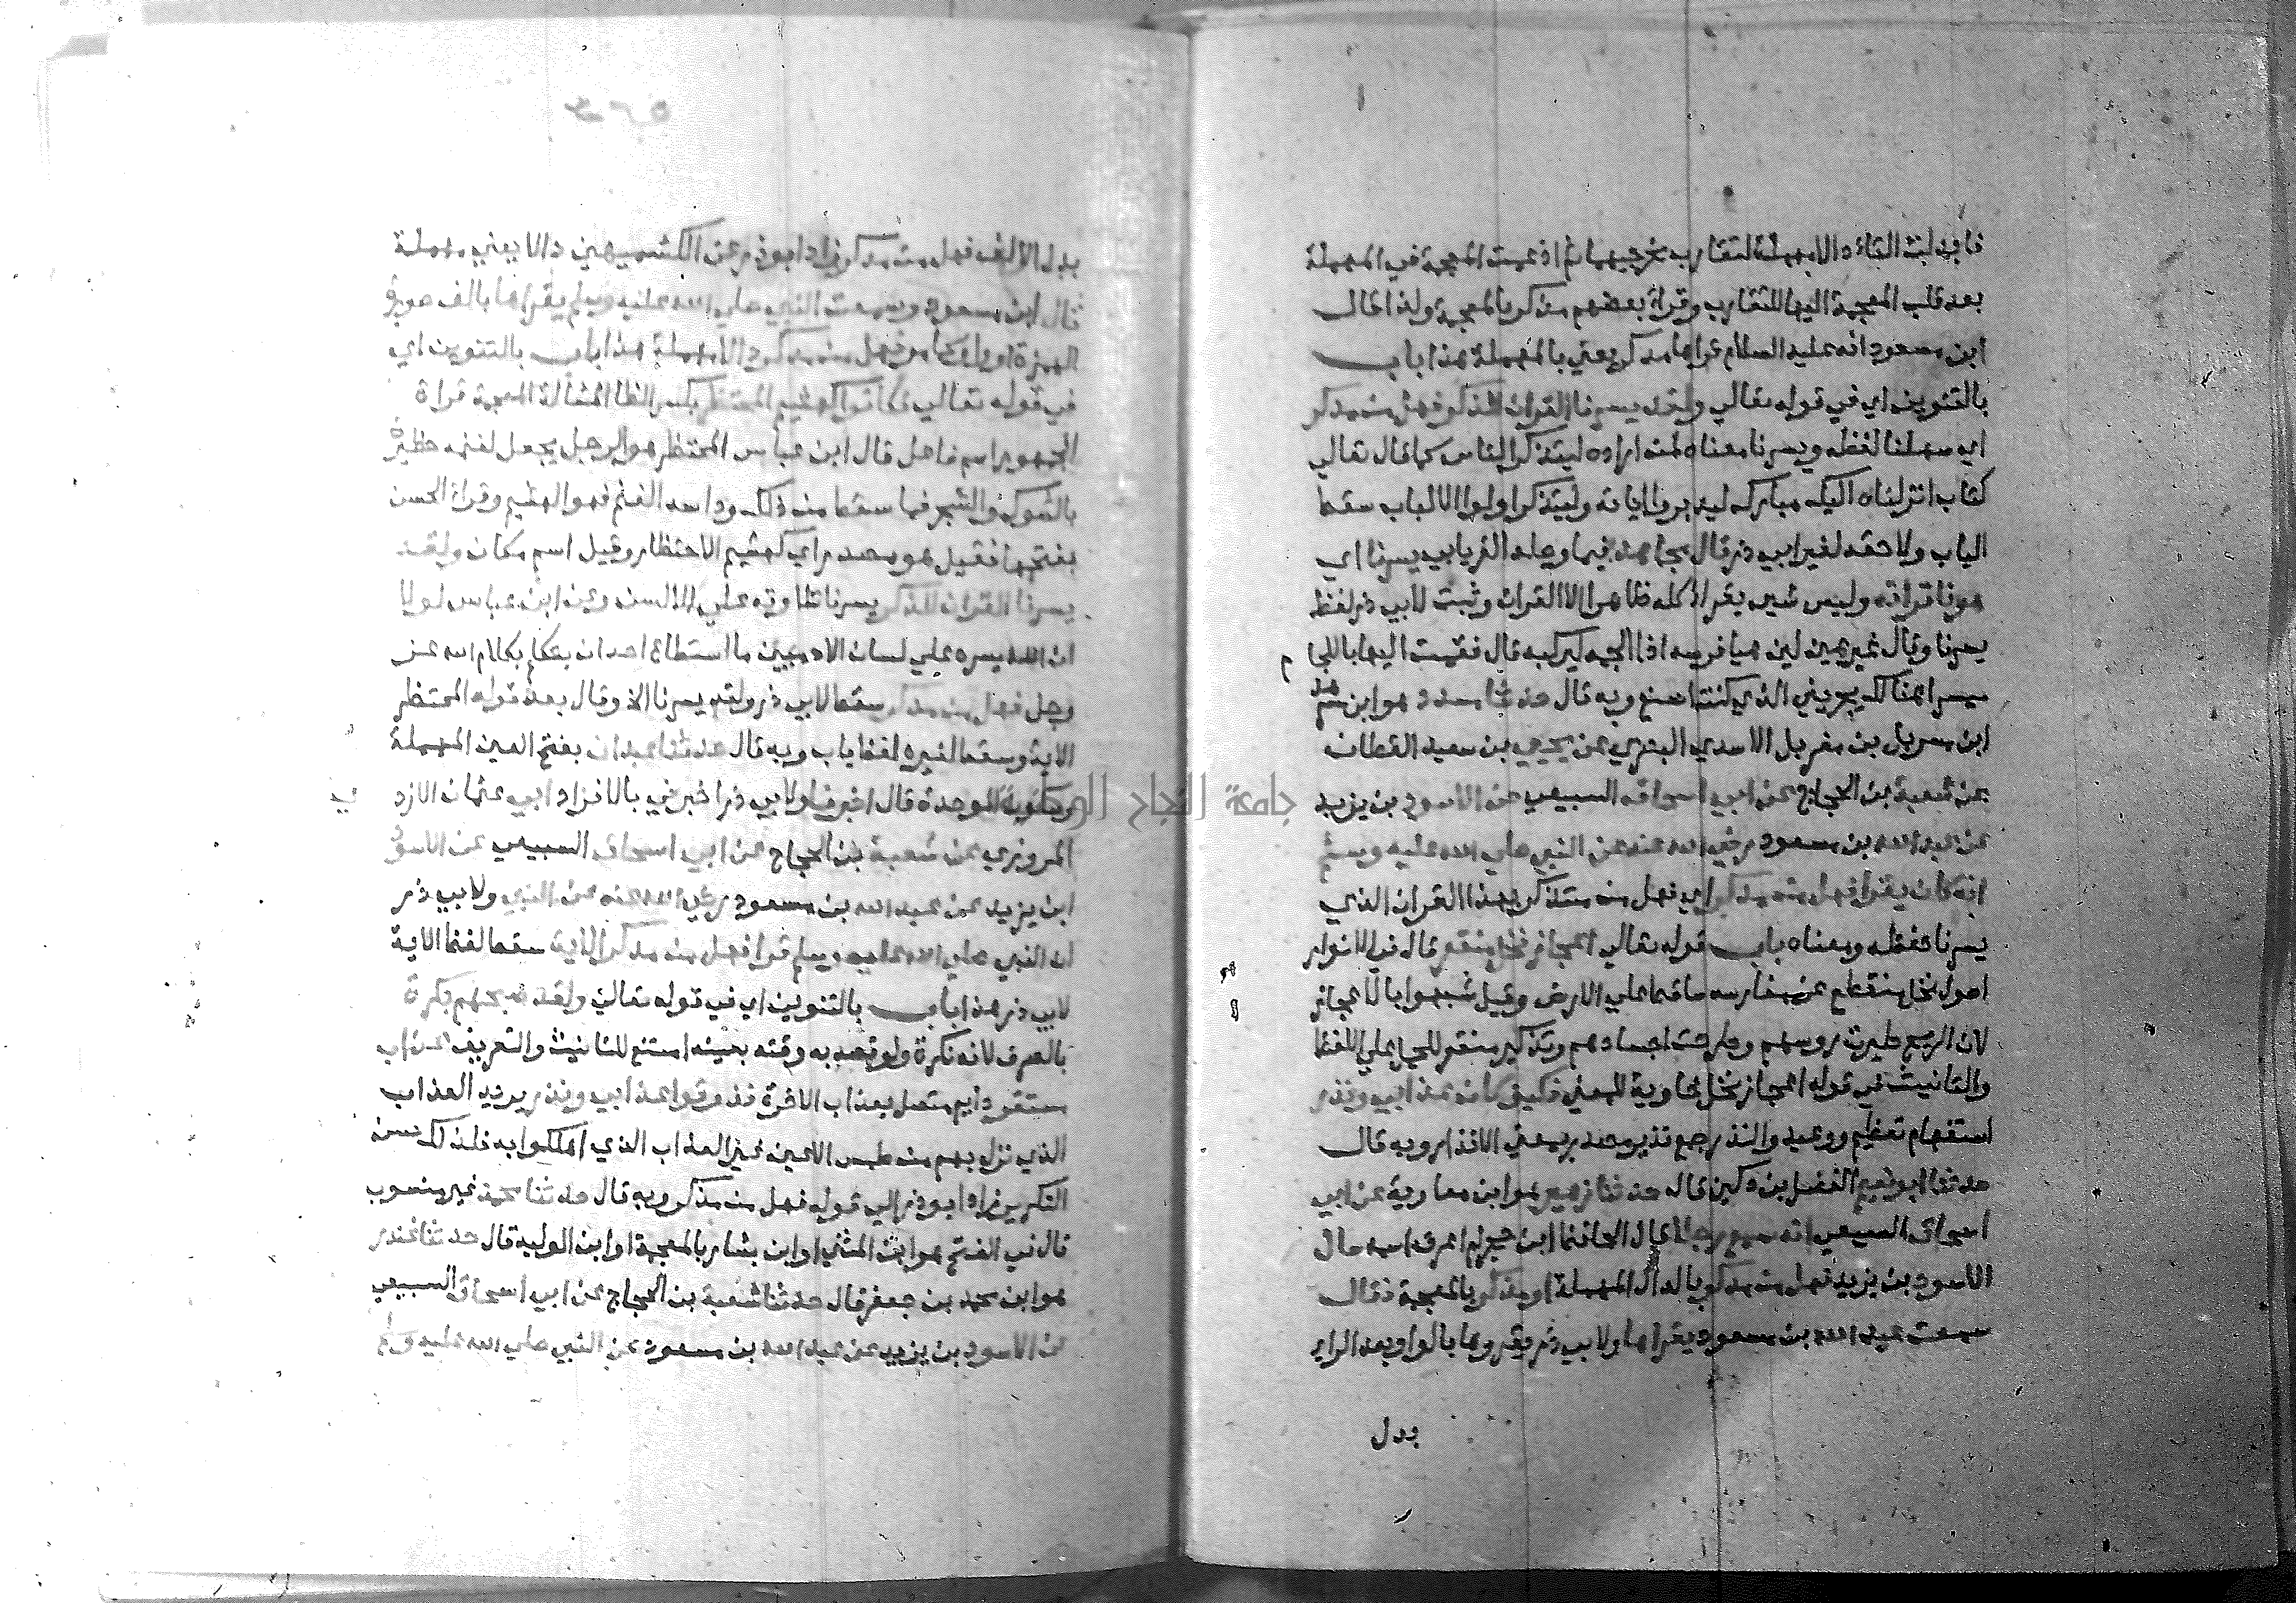 فابدلت التاء دالا مهملة لتقارب مخرجيهما ثم ادغمت المعجمة في المهملة
بعد قلب المعجمة اليها للتقارب وقراة بعضهم مذكر بالمعجمة ولذا قال
ابن مسعود انه عليه السلام قراها مدكر يعني بالمهملة هذا باب
بالتنوين اي في قوله تعالي ولقد يسرنا القران للذكر فهل من مدكر
اي سهلنا لفظه ويسرنا معناه لمن اراده ليتذكر الناس كما قال تعالي
كتاب انزلناه اليك مبارك ليدبروا اياته وليتذكر اولوا الالباب سقط
الباب ولاحقه لغير ابي ذر قال مجاهد فيما وصله الفريابي يسرنا اي
هونا قراته وليس شي يقرا كله ظاهرا الا القران وثبت لابي ذر لفظ
يسرنا وقال غير
ميسرا هنالك يجزيني الذي كنت اصنع وبه قال حدثنا مسدد هو ابن مسرهد
ابن مسربل بن مغربل الاسدي البصري عن يحيي بن سعيد القطان
عن شعبة بن الحجاج عن ابي اسحاق السبيعي عن الاسود بن يزيد
عن عبد الله بن مسعود رضي الله عنه عن النبي صلي الله عليه وسلم
انه كان يقرا فهل من مدكر اي فهل من متذكر بهذا القران الذي
يسرنا حفظه ومعناه باب قوله تعالي اعجاز نخل منقعر قال في الانوار
اصول نخل منقطع عن مغارسه ساقط علي الارض وقيل شبهوا بالاعجاز
لان الريح طيرت روسهم وطرحت اجسادهم وتذكير منقعر للحمل علي اللفظ
والتانيث في قوله اعجاز نخل خاوية للمعني فكيف كان عذابي ونذر
استفهام تعظيم ووعيد والنذر جمع نذير مصدر بمعني الانذار وبه قال
حدثنا ابو نعيم الفضل بن دكين قال حدثنا زهير هو ابن معاوية عن ابي
اسحاق السبيعي انه سمع رجلا قال الحافظ ابن حجر لم اعرف اسمه سال
الاسود بن يزيد فهل من مدكر بالدال المهملة او مذكر بالمعجمة فقال
سمعت عبد الله بن مسعود يقراها ولابي ذر يقروها بالواو بعد الراء
بدل
بدل الالف فهل من مدكر زاد ابو ذر عن الكشميهني دالا يعني مهملة
قال ابن مسعود وسمعت النبي صلي الله عليه وسلم يقراها بالف صورة
الهمزة فهل من مدكر دالا مهملة هذا باب بالتنوين اي
في قوله تعالي فكانوا كهشيم المحتظر بكسر الظا المشالة المعجمة قراة
الجمهور اسم فاعل قال ابن عباس المحتظر هو الرجل يجعل لغنمه حظيرة
بالشوك والشجر فما سقط من ذلك وداسه الغنم فهو الهشيم وقراة الحسن
بفتحها فقيل هو مصدر اي كهشيم الاحتظار وقيل اسم مكان ولقد
يسرنا القران للذكر يسرنا تلاوته علي الالسن وعن ابن عباس لولا
ان الله يسره علي لسان الادميين ما استطاع احد ان يتكلم بكلام الله عز
وجل فهل من مدكر سقط لابي ذر ولقد يسرنا الخ وقال بعد قوله المحتظر
الاية وسقط لغيره لفظ باب وبه قال حدثنا عبدان بفتح العين المهملة
وسكون الموحدة قال اخبرنا ولابي ذر اخبرني بالافراد ابي عثمان الازدي
المروزي عن شعبة بن الحجاج عن ابي اسحاق السبيعي عن الاسود
ابن يزيد عن عبد الله بن مسعود رضي الله عنه عن النبي ولابي ذر
ان النبي صلي الله عليه وسلم قرا فهل من مدكر الاية سقط لفظ الاية
لابي ذر هذا باب بالتنوين اي في قوله تعالي ولقد صبحهم بكرة
بالصرف لانه نكرة ولو قصد به وقته بعينه امتنع للتانيث والتعريف عذاب
مستقر دايم متصل بعذاب الاخرة فذوقوا عذابي ونذر يريد العذاب
الذي نزل بهم من طمس الاعين غير العذاب الذي اهلكوا به فلذلك حسن
التكرير زاد ابو ذر الي قوله فهل من مدكر وبه قال حدثنا محمد غير منسوب
قال في الفتح هو ابن المثني او ابن بشار بالمعجمة او ابن الوليد قال حدثنا غندر
هو ابن محمد بن جعفر قال حدثنا شعبة بن الحجاج عن ابي اسحاق السبيعي
عن الاسود بن يزيد عن عبد الله بن مسعود عن النبي صلي الله عليه وسلم
جامعة النجاح